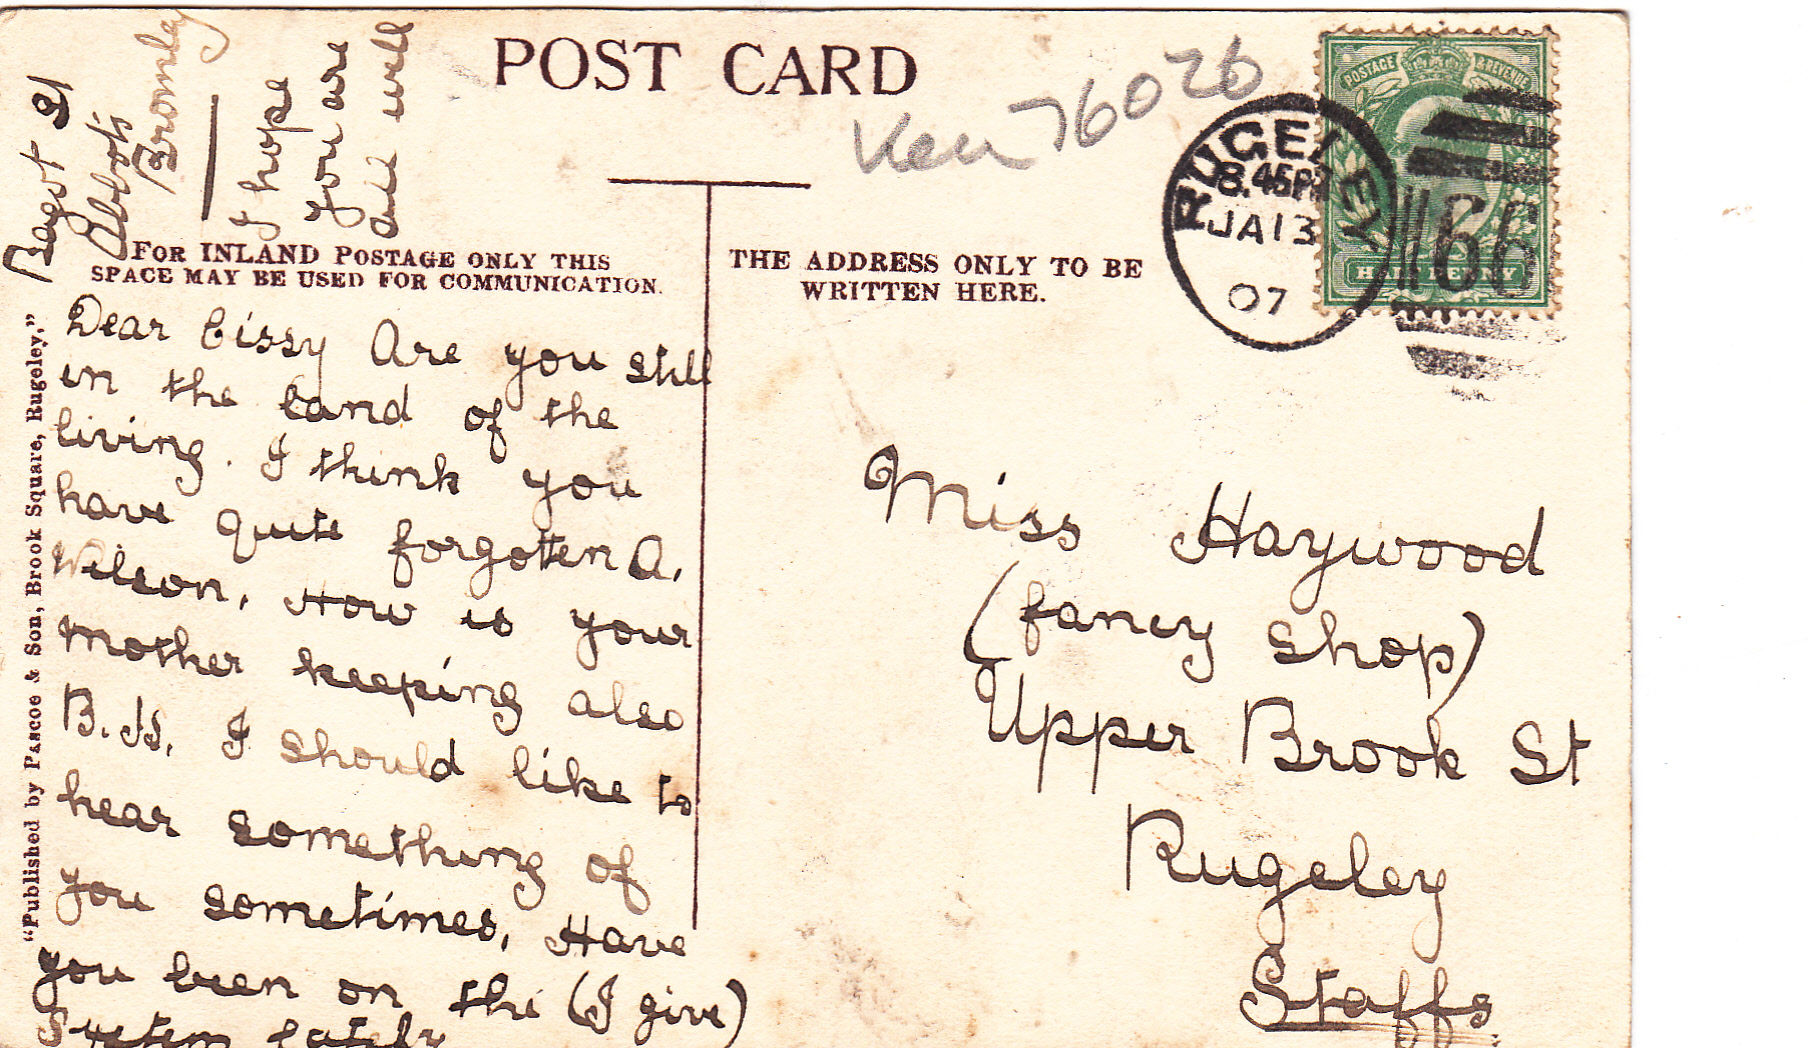 POST CARD
Ken 76026
Bagot St
Abbots
Bromley
I hope
you are
all well
FOR INLAND POSTAGE ONLY THIS
SPACE MAY BE USED FOR COMMUNICATION.
THE ADDRESS ONLY TO BE
WRITTEN HERE.
POSTAGE & REVENUE
HALF PENNY
RUGELEY
8.45PM
JA 13
07
66
"Published by Pascoe & Son, Brook Square, Rugeley,"
Dear Cissy Are you still
in the land of the
living. I think you
have quite forgotten A.
Wilson. How is your
mother keeping also
B. H. I should like to
hear something of
you sometimes, Have
you been on the (I give)
System lately
Miss Haywood
(fancy shop)
Upper Brook St
Rugeley
Staffs